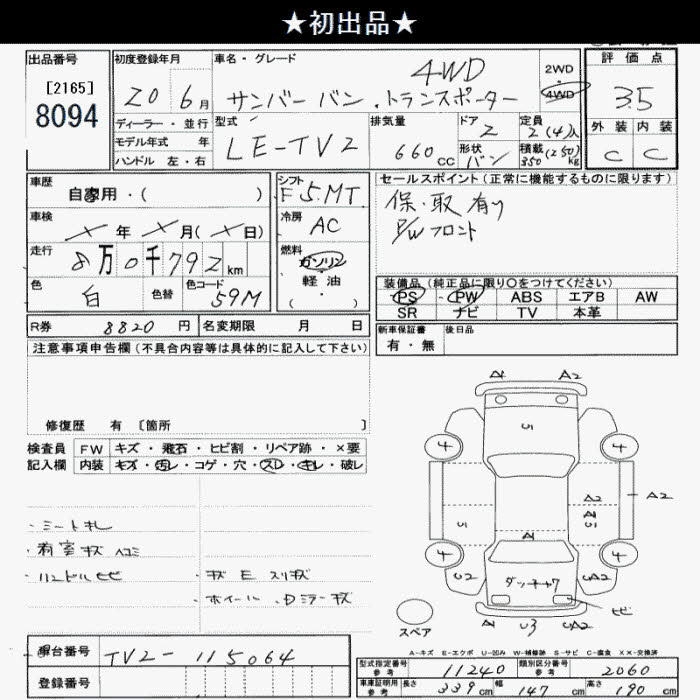 ★初出品★
出品番号
[2165]
8094
初度登録年月
20 6月
ディーラー ・ 並行
モデル年式 年
ハンドル 左・右
車名・グレード
4WD
サンバー バン ・ トランスポーター
2WD
4WD
型式
LE-TV2
排気量
660 CC
ドア
2
形状
バン
定員
2(4)人
積載
350 (250) kg
評価点
3.5
外装 内装
C C
車歴
自家用・( )
車検
× 年 × 月(× 日)
走行
8万0千792 km
色
白
色替
色コード
59M
シフト
F5 MT
冷房
AC
燃料
ガソリン
・
軽油
( )
セールスポイント(正常に機能するものに限ります)
保・取 有り
P/W フロント
装備品(純正品に限り○をつけてください)
PS PW ABS エアB AW
SR ナビ TV 本革
R券 8820 円 名変期限 月 日
新車保証書
有・無
後日品
注意事項申告欄(不具合内容等は具体的に記入して下さい)
修復歴 有 〔箇所 〕
検査員
記入欄
FW キズ・飛石・ヒビ割・リペア跡・×要
内装 キズ・汚レ・コゲ・穴・スレ・キレ・破レ
・シート 汚レ
・荷室 キズ ヘコミ
・ハンドル ヒビ
・キズ E スリキズ
・ホイール ・Dミラー キズ
A1 A2
U5
4 4
U5
A2
A1
U5
A2
A1
4 4
U2
ダッチャク
UA2
A1 U3 A2
ヒビ
スペア
A-キズ E-エクボ U-凹み W-補修跡 S-サビ C-腐食 ××-交換済
車台番号
TV2-115064
登録番号
型式指定番号
参考
11240
類別区分番号
参考
2060
車庫証明用
参考
長さ 339 cm 幅 147 cm 高さ 190 cm